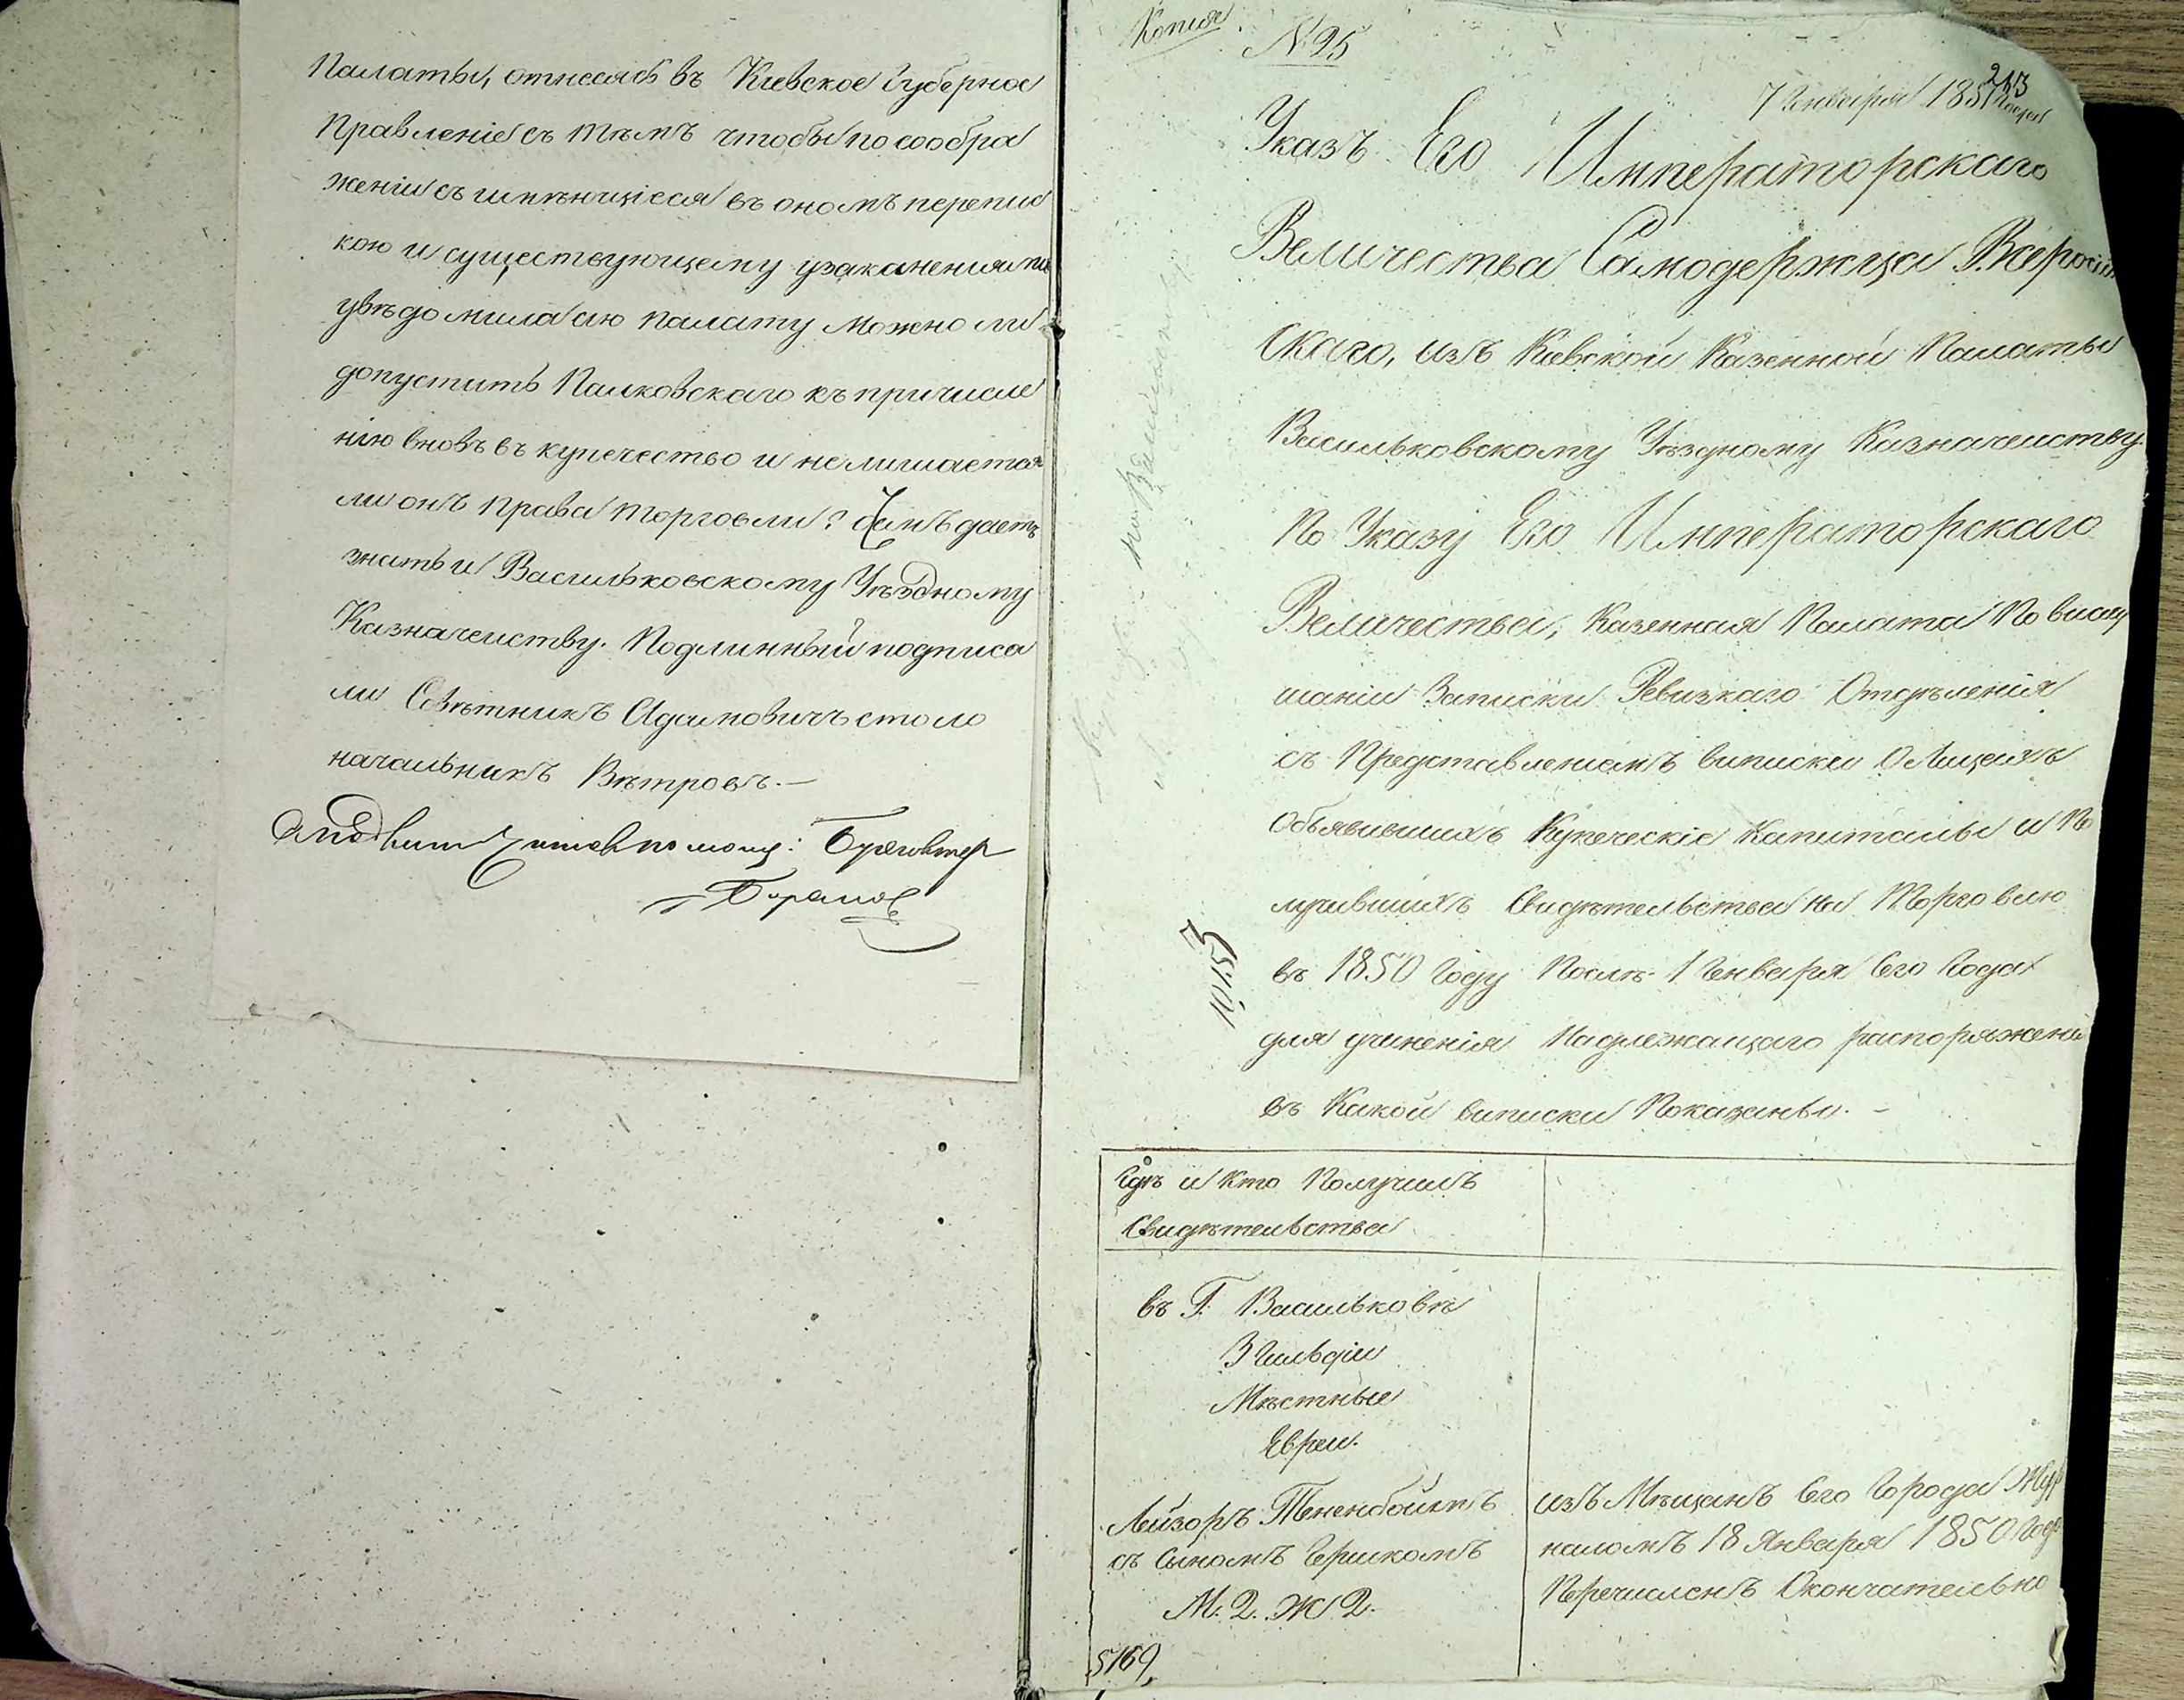 Палаты, отнесясь въ Кіевское Губерное
Правленіе съ тѣмъ чтобы по сообра
женіи съ имѣющіеся въ ономъ перепис
кою и существующему узаконеніямъ
увѣдомила сію палату можно ли
допустить Палковскаго къ причисле
нію вновь въ купечество и не лишается
ли онъ права торговли? о чемъ даетъ
знать и Васильковскому Уѣздному
Казначеиству. Подлинный подписа
ли Совѣтникъ Адамовичъ столо
начальникъ Вѣтровъ.—
Бухгалтер
Копия
№ 25
213
7 Генваря 1851 года
Указъ Его Императорскаго
Величества Самодержца Всеросій
скаго, изъ Киевской Казенной Палаты
Васильковскому Уѣздному Казначеиству.
По Указу Его Императорскаго
Величества, Казенная Палата По выслу
шаніи Записки Ревизкаго Отдѣленія
съ Представленіемъ выписки О Лицахъ
Объявившихъ Купеческіе Капиталы и По
лучившихъ Свидѣтельства на Торговлю
въ 1850 Году Послѣ 1 Генваря Сего Года
для учиненія Надлежащаго распоряжения
въ Какой выписки Показаны.—
Гдѣ и Кто Получилъ
Свидѣтельства
въ Г. Васильковѣ
3 Гильдіи
Мѣстные
Евреи.
Лейзоръ Тененбоймъ
съ Сыномъ Гершкомъ
М. 2. Ж 2.
изъ Мѣщанъ Сего Города Жур
наломъ 18 Января 1850 Года
Перечисленъ Окончательно
5169,